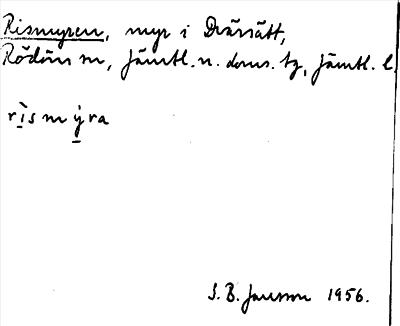 Rismyren, myr i Dvärsätt,
Rödöns sn, Jämtl. n. doms. tg, Jämtl. l.
rìsmýra
S. B. Jansson 1956.